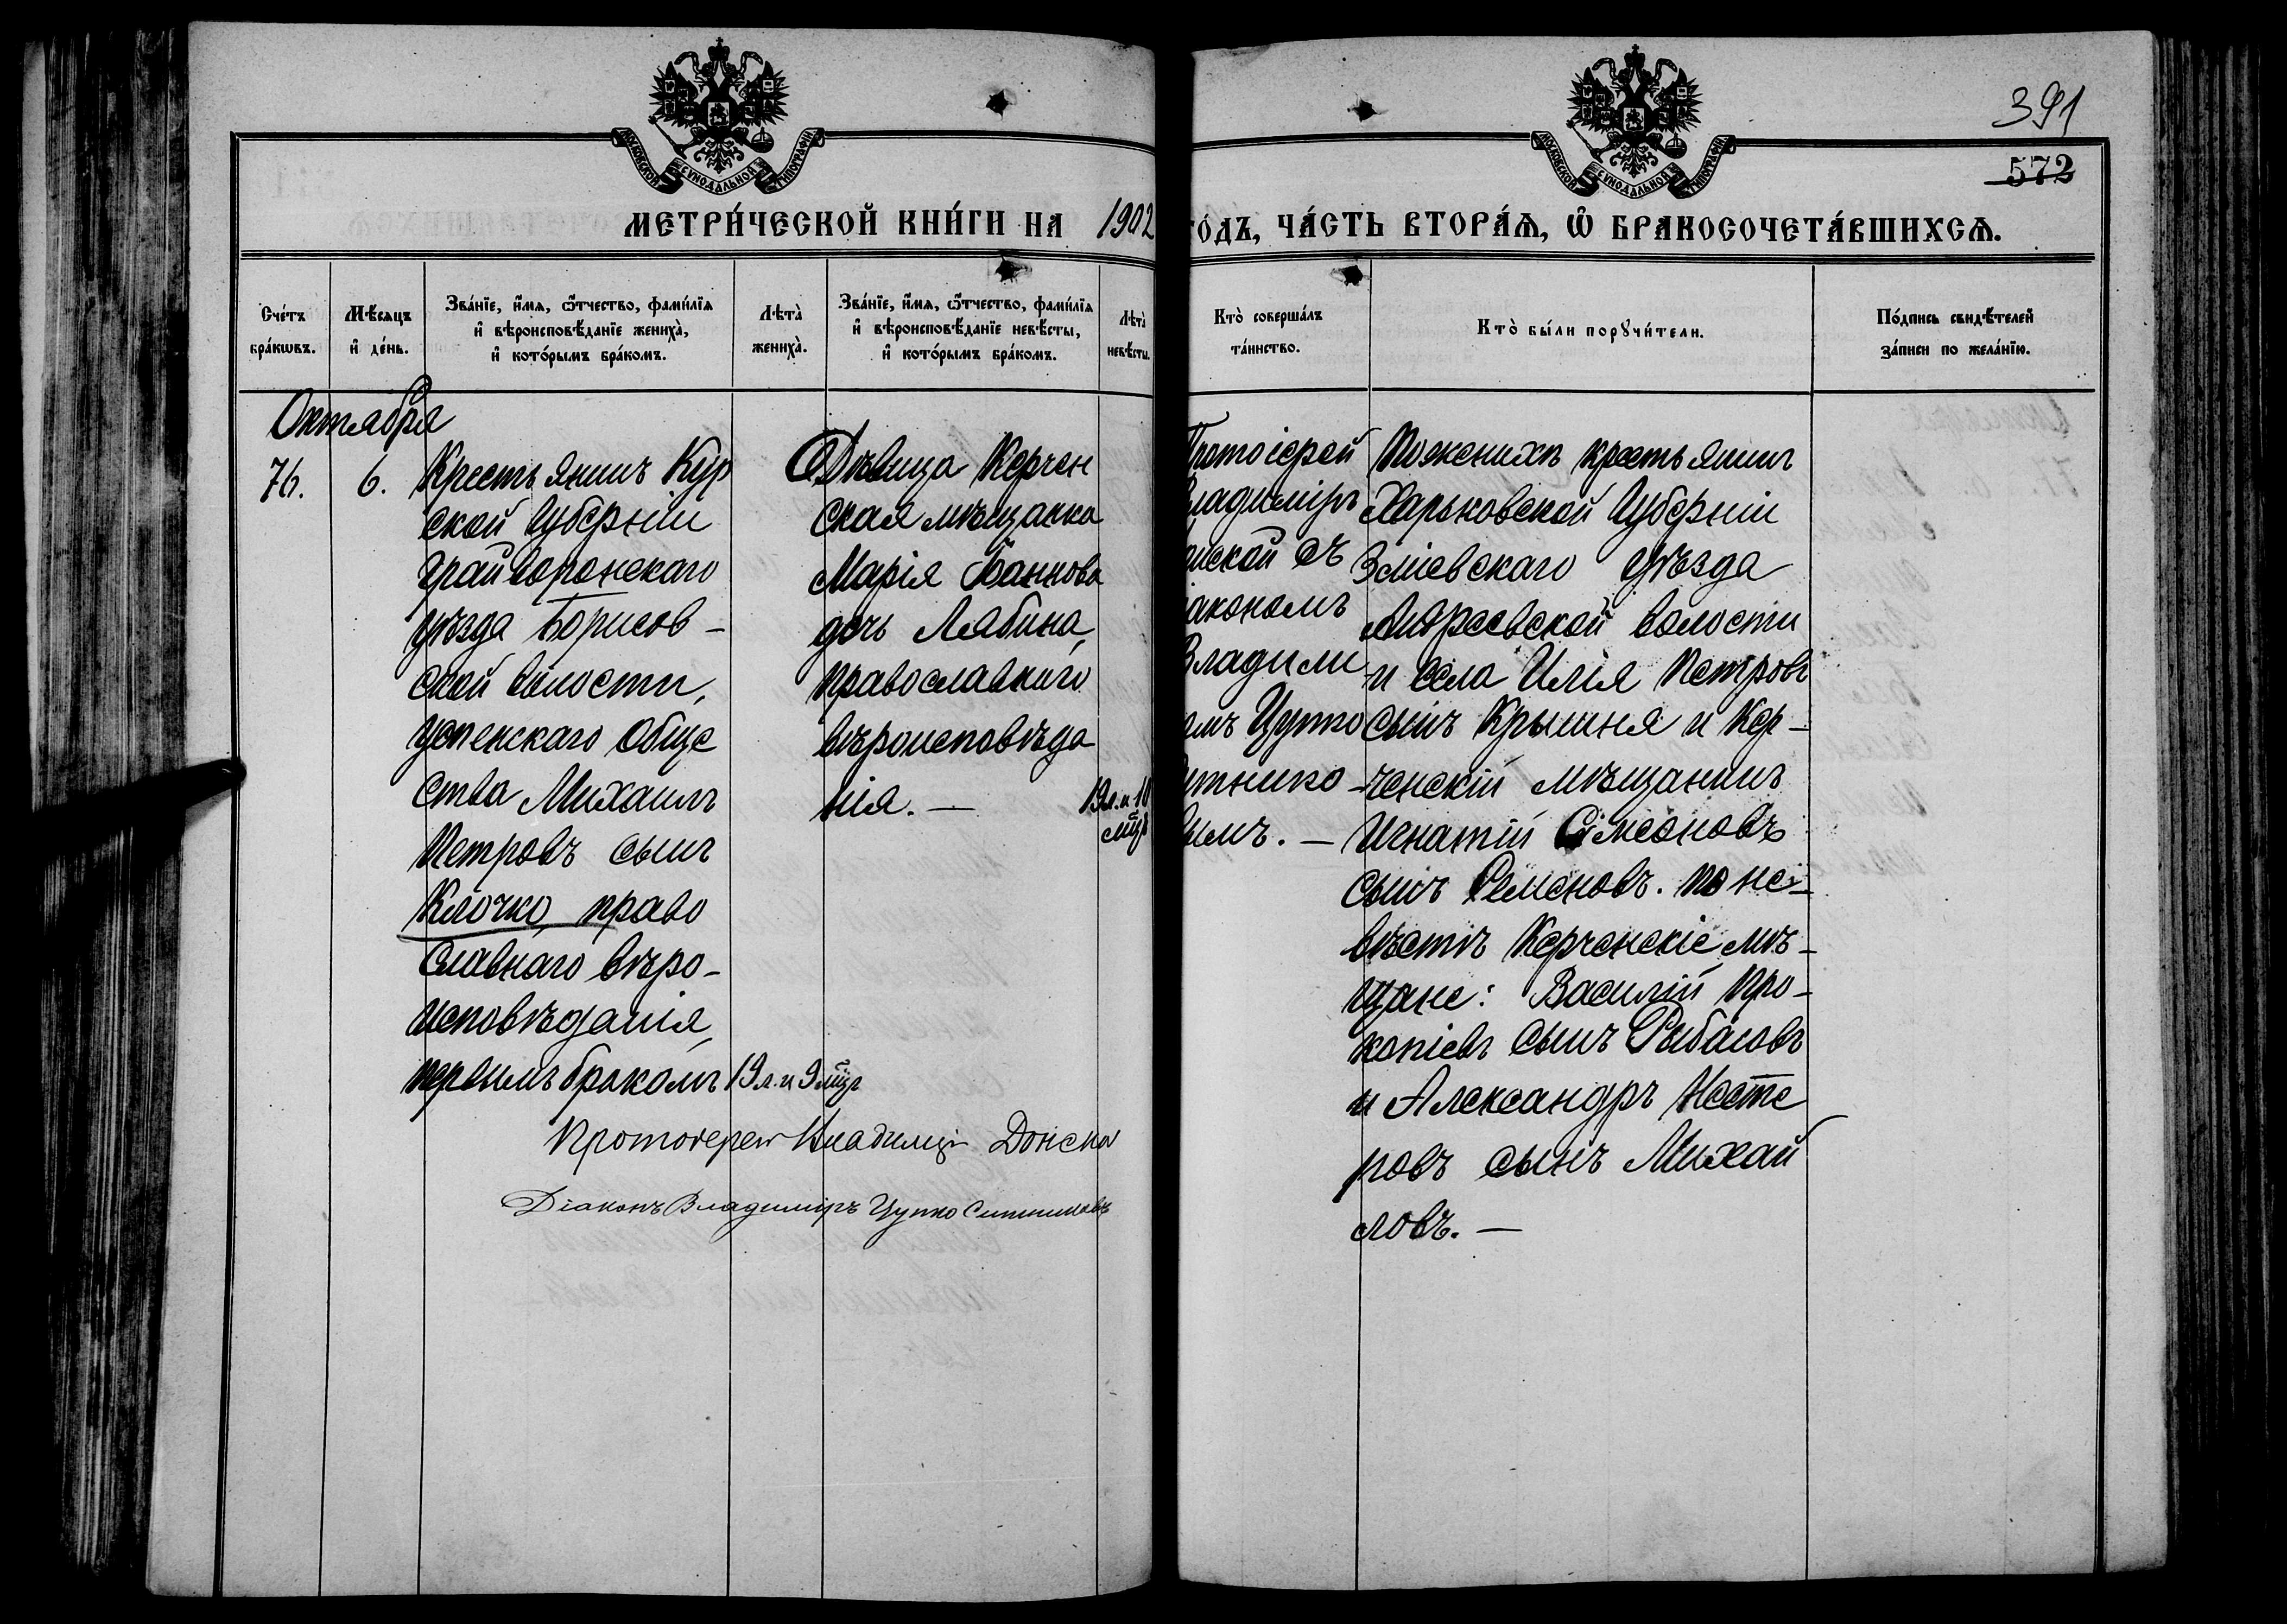 391
572
МОСКОВСКОЙ СУНОДАЛЬНОЙ ТИПОГРАФІИ
МОСКОВСКОЙ СУНОДАЛЬНОЙ ТИПОГРАФІИ
МЕТРИ́ЧЕСКОЙ КНИ́ГИ НА 1902
ГО́ДЪ, ЧА́СТЬ ВТОРА́Ѧ, Ѽ БРАКОСОЧЕТА́ВШИХСѦ.
Сче́тъ
бра́кѡвъ.
Мѣ́сѧцъ
и҆ де́нь.
Зва́нїе, и҆́мѧ, ѻ҆́тчество, фами́лїѧ
и҆ вѣроисповѣ́данїе жениха̀,
и҆ кото́рымъ бра́комъ.
Лѣта̀
жениха̀.
Зва́нїе, и҆́мѧ, ѻ҆́тчество, фами́лїѧ
и҆ вѣроисповѣ́данїе невѣ́сты,
и҆ кото́рымъ бра́комъ.
Лѣта̀
невѣ́сты.
Кто̀ соверша́лъ
та́инство.
Кто̀ бы́ли порꙋчи́тели.
По́дпись свидѣ́телей
за́писи по жела́нїю.
Октября
76.
6.
Крестьянинъ Кур
ской Губерніи
Грайворонскаго
уѣзда Борисов-
ской волости,
Успенскаго Обще
ства Михаилъ
Петровъ сынъ
Клочко, право
славнаго вѣро-
исповѣданія,
первымъ бракомъ
19 л. и 9 мц
Дѣвица Керчен
ская мѣщанка
Марія
дочь Лябина,
православнаго
вѣроисповѣда
нія. —
19 л. и 10
мц
Протоіерей
Владиміръ
нской съ
іакономъ
Владими
мъ Цупко
ытнико-
вымъ. —
По женихѣ крестьянинъ
Харьковской Губерніи
Зміевскаго уѣзда
Андреевской волости
и села Илія Петровъ
сынъ Крышня и Кер-
ченскій мѣщанинъ
Игнатій Сімеоновъ
сынъ Семеновъ. По не-
вѣстѣ Керченскіе мѣ-
щане: Василій Про-
копіевъ сынъ Рыбасовъ
и Александръ Несте
ровъ сынъ Михай
ловъ. —
Протоіерей Владиміръ Донской
Діаконъ Владиміръ Цупко Ситниковъ